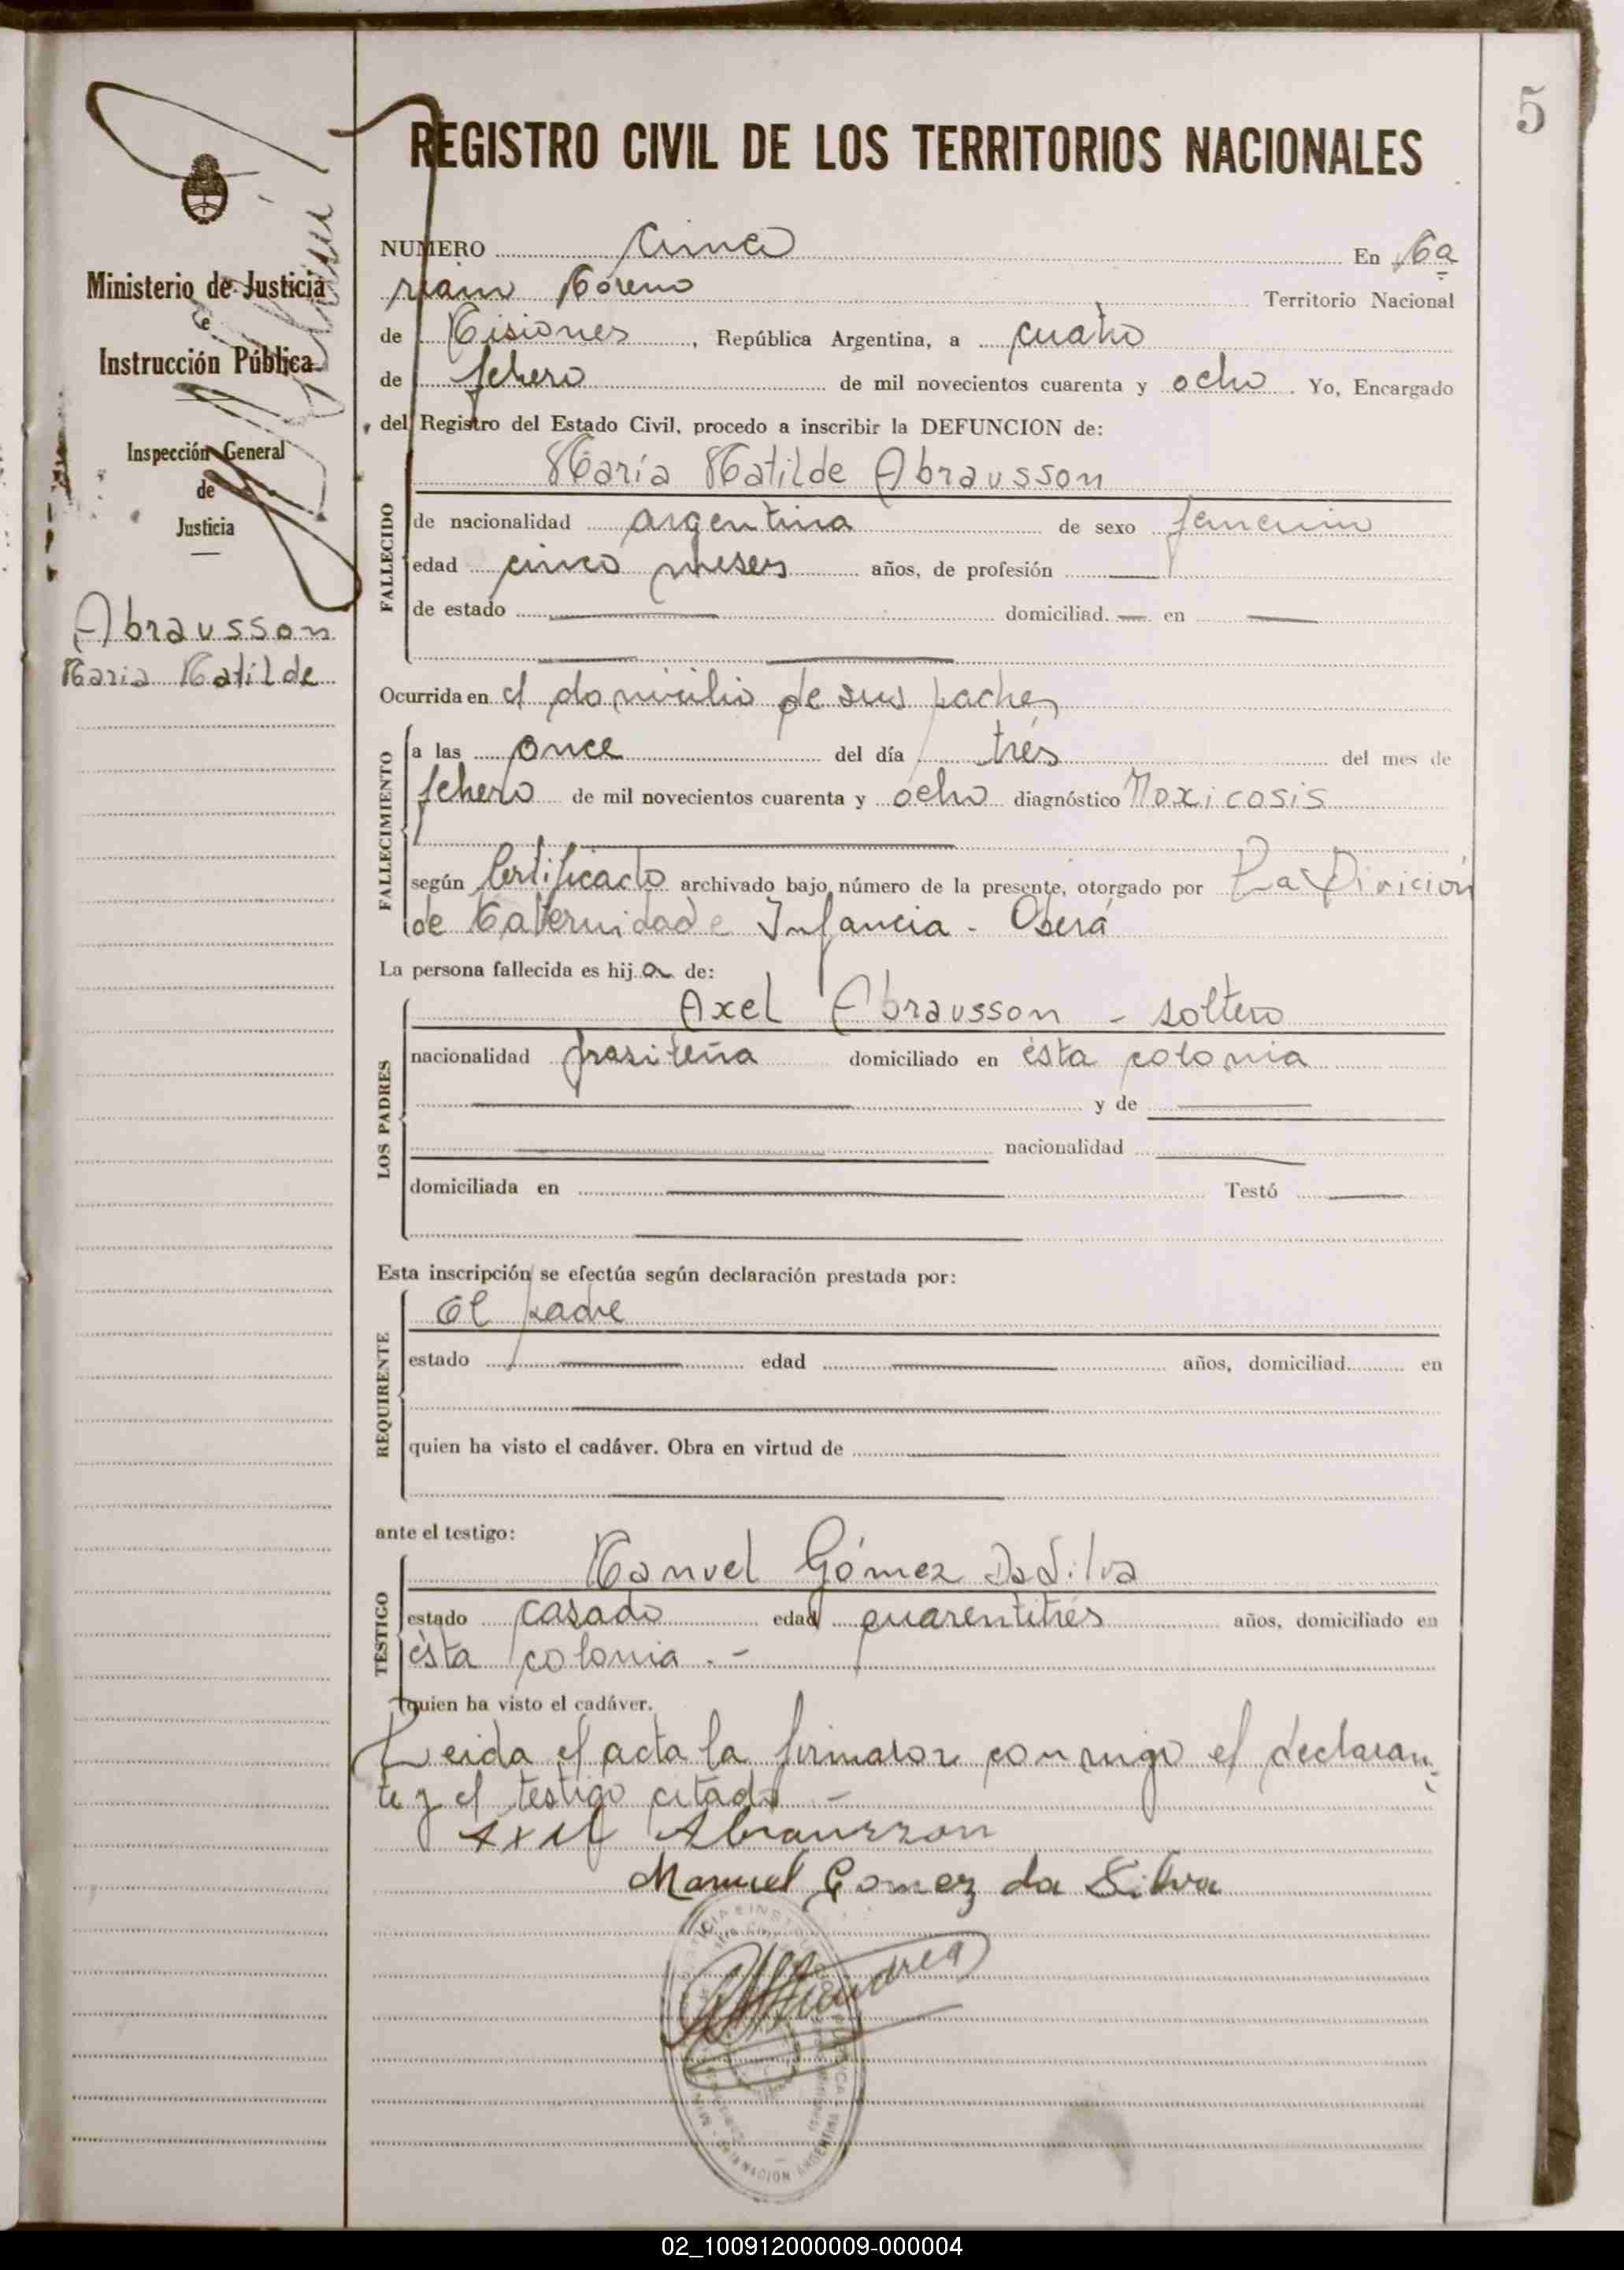 5
REGISTRO CIVIL DE LOS TERRITORIOS NACIONALES
Ministerio de Justicia
e
Instrucción Pública
Inspección General
de
Justicia
Abrausson
Maria Matilde
NUMERO cinco En Ma
riano Moreno Territorio Nacional
de Misiones, República Argentina, a cuatro
de febrero de mil novecientos cuarenta y ocho. Yo, Encargado
del Registro del Estado Civil, procedo a inscribir la DEFUNCION de:
María Matilde Abrausson
FALLECIDO
de nacionalidad argentina de sexo femenino
edad cinco meses años, de profesión —
de estado — domiciliad. — en —
Ocurrida en el domicilio de sus padres
FALLECIMIENTO
a las once del día trés del mes de
febrero de mil novecientos cuarenta y ocho diagnóstico Toxicosis
según Certificado archivado bajo número de la presente, otorgado por La Dirición
de Maternidad e Infancia - Oberá
La persona fallecida es hija de:
LOS PADRES
Axel Abrausson - soltero
nacionalidad brasileña domiciliado en ésta colonia
— y de —
— nacionalidad —
domiciliada en — Testó —
Esta inscripción se efectúa según declaración prestada por:
REQUIRENTE
El padre
estado — edad — años, domiciliad en
quien ha visto el cadáver. Obra en virtud de —
ante el testigo:
TESTIGO
Manuel Gómez Da Silva
estado casado edad cuarentitrés años, domiciliado en
ésta colonia.-
quien ha visto el cadáver.
Leida el acta la firmaron conmigo el declaran-
te y el testigo citado -
Axel Abrausson
Manuel Gomez da Silva
NACION ARGENTINA
02_100912000009-000004